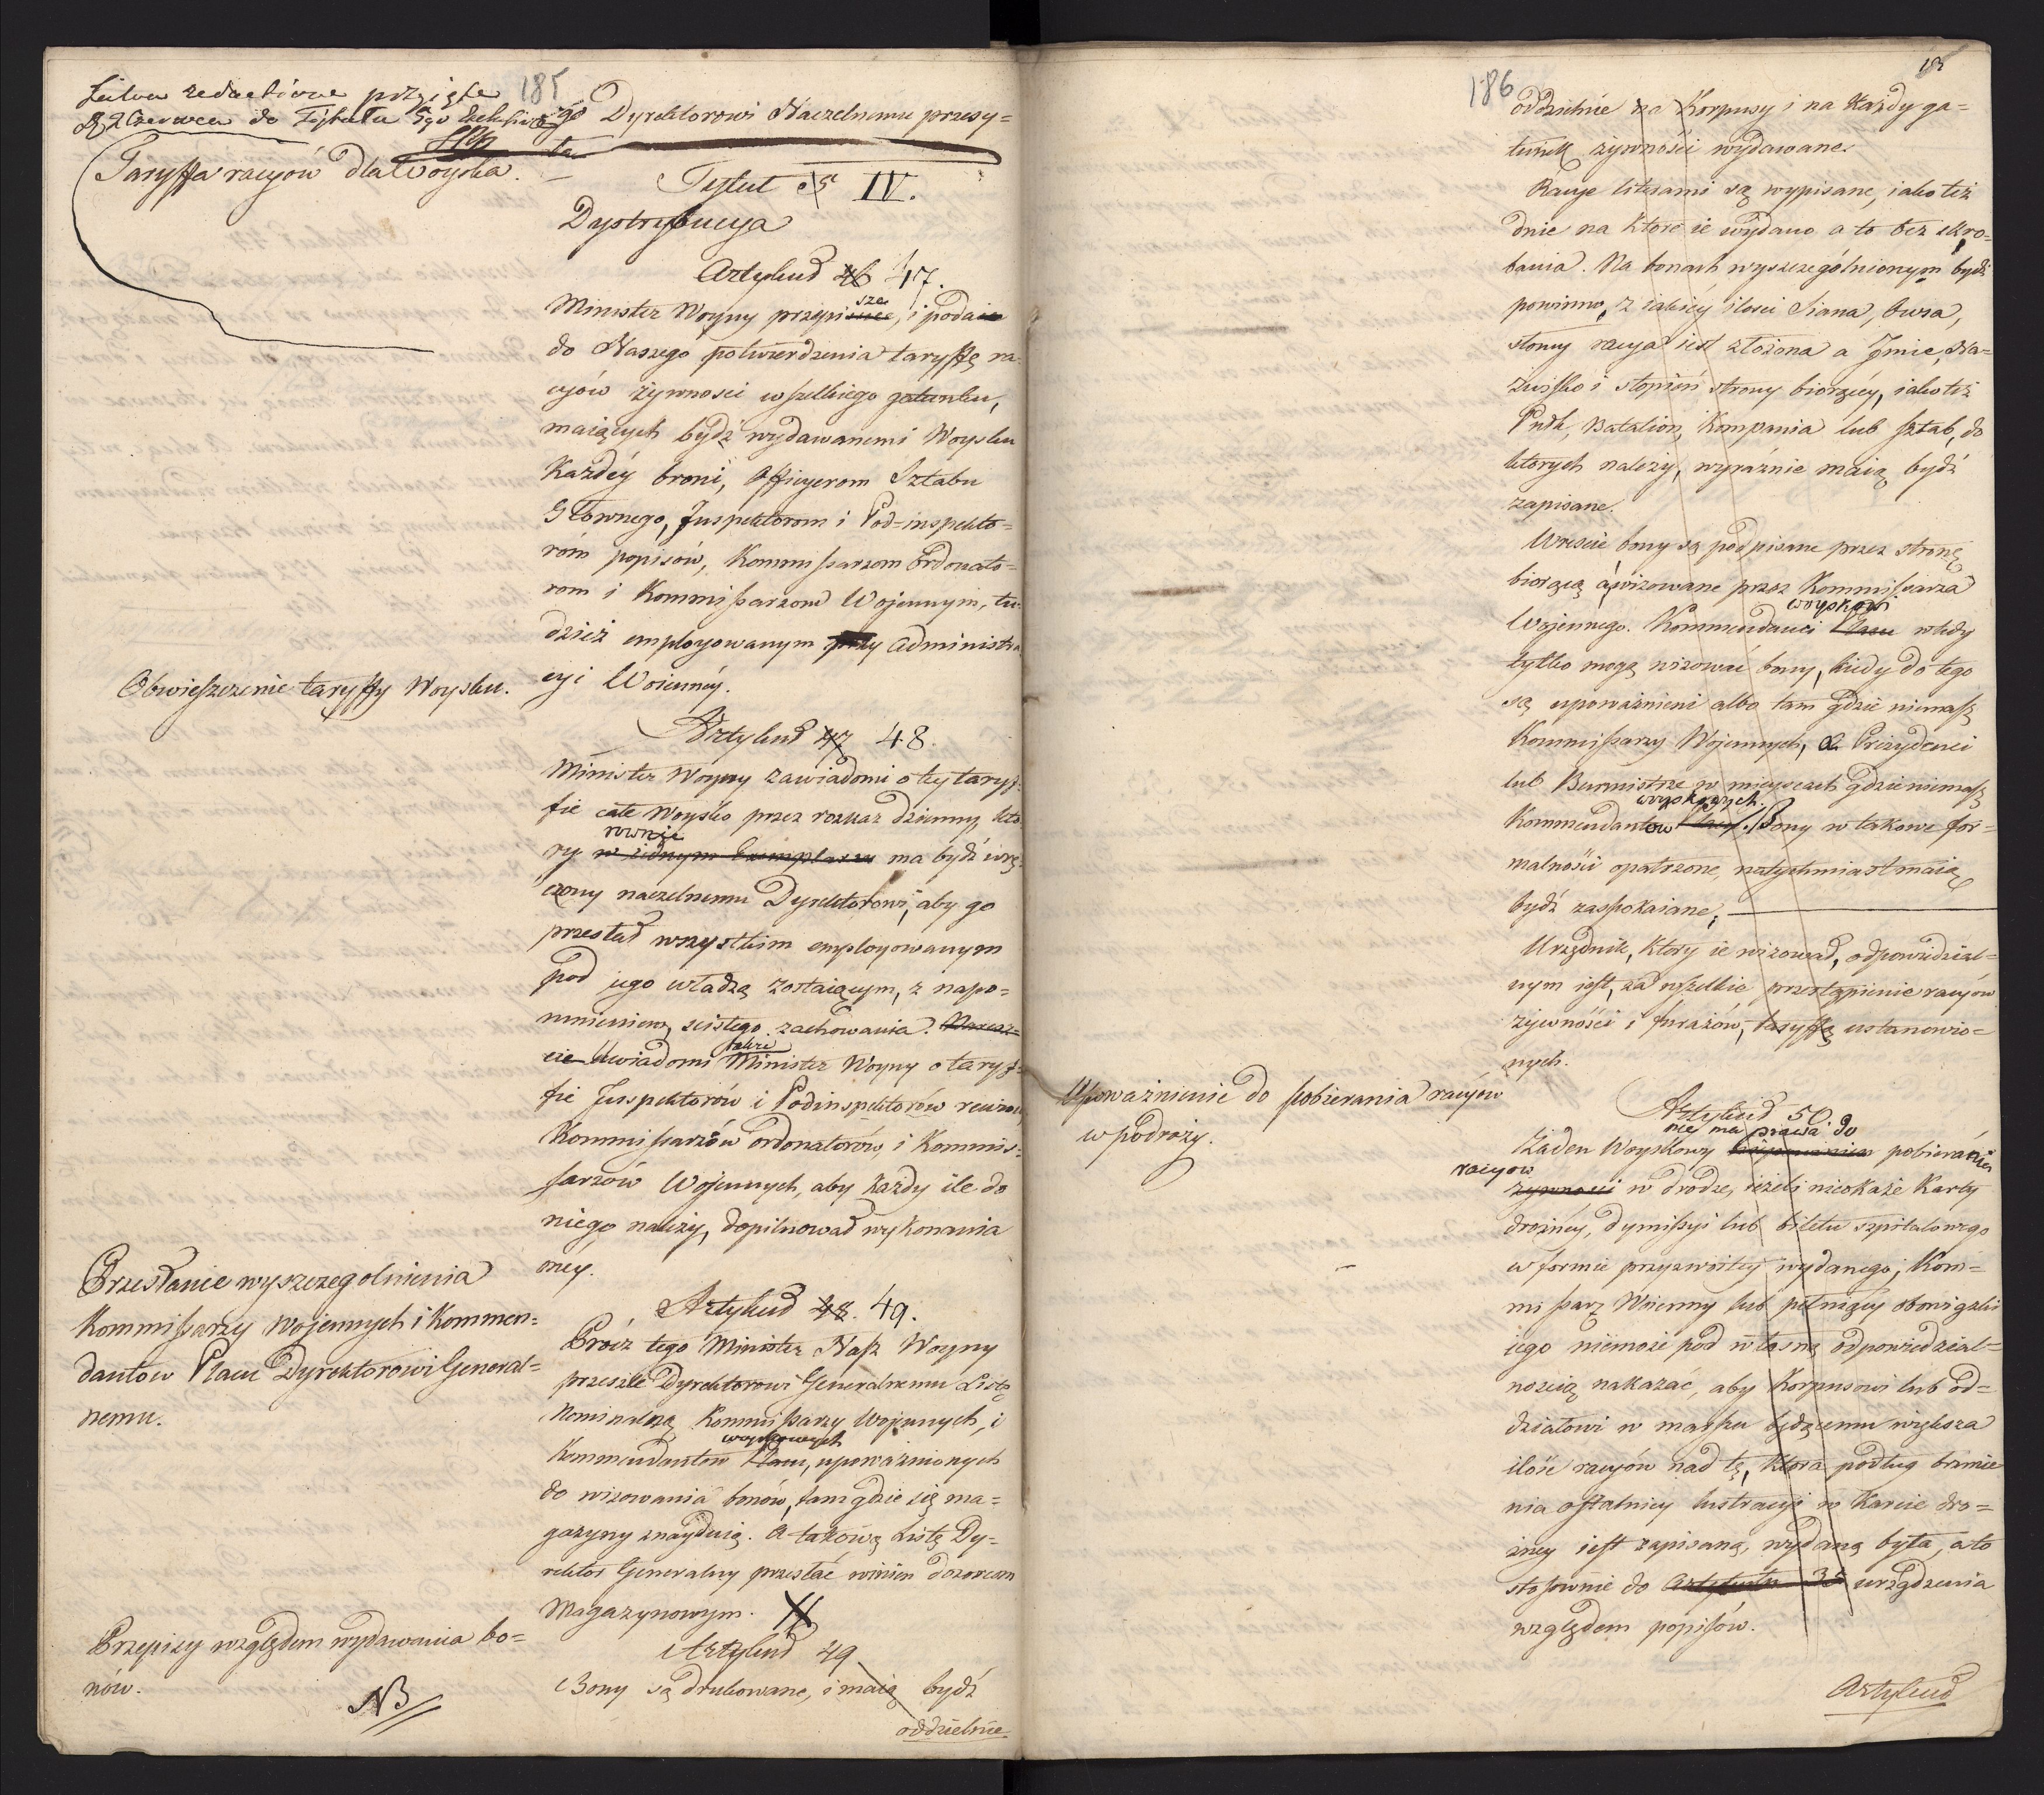 185
przyięte
2 Czerwca do Tytułu 5go
Taryffa racyów dla Woyska.
Dyrektorowi Naczelnemu przesy=
ła.
Tytuł 5 IV.
Dystrybucya
Artykuł 46 47.
Minister Woyny przepisze, i poda
do Naszego potwierdzenia taryffę ra=
cyów żywnosci wszelkiego gatunku,
maiących bydź wydawanemi Woysku
Każdéy broni, Officyerom Sztabu
Głownego, Inspektorom i Pod=inspekto=
róm popisów, Kommissarzom Ordonato=
rom i Kommissarzom Wojennym, tu=
dzież employowanym przy Administra
cyi Woienney.
Obwieszczenie taryffy Woysku.
Artykuł 47 48.
Minister Woyny zawiadomi o tey taryf=
fie całe Woysko przez rozkaz dzienny, któ
równie
ry w iednym Exemplarzu ma bydź wrę=
czony naczelnemu Dyrektorowi, aby go
przesłał wszystkim employowanym
pod jego władzą zostaiącym, z napo=
mnieniem scisłego zachowania.
także
Uwiadomi Minister Woyny o taryf=
fie Inspektorów i Podinspektorów
Kommissarzów ordonatorów, i Kommis=
sarzów Wojennych, aby każdy ile do
niego należy, dopilnował wykonania
oney.
Przesłanie wyszczegolnienia
Kommissarzy Wojennych i Kommen=
dantow Placu Dyrektorowi General=
nemu.
Artykuł 48. 49.
Prócz tego Minister Nasz Woyny
przeszle Dyrektorowi Generalnemu Listę
Nominalną Kommissarzy Wojennych, i
woyskowych
Kommendantow Placu, upoważnionych
do wizowania bonów, tam gdzie się ma=
gazyny znayduią. A takową Listę Dy=
rektor Generalny przesłać winien dozorcom
Magazynowym.
Przepisy względem wydawania bo=
nów.
NB
Artykuł 49
Bony są drukowane, i maią bydź
oddzielnie
186
oddzielnie na Korpusy i na Każdy ga=
tunek żywności wydawane.
Racye literami są wypisane, iako też
dnie na które ie wydano a to bez skro=
bania. Na bonach wyszczególnionym bydź
powinno, z iakiey ilosci Siana, Owsa,
słomy racya iest złożona a Jmie, Na=
zwisko i stopień strony biorącey, iako też
Pułk, Batalion, Kompania lub sztab, do
ktorych należy, wyraźnie maią bydź
zapisane.
Wreście bony są podpisane przez stronę
biorącą a wizowane przez Kommissarza
woyskowi
Wojennego. Kommendanci Placu wtedy
tylko mogą wizować bony, kiedy do tego
są upoważnieni albo tam gdzie niemasz
Kommissarzy Wojennych, a Prezydenci
lub Burmistrze w mieyscach gdzie niemasz
woyskowych.
Kommendantow Placu. Bony w takowe for=
malności opatrzone, natychmiast maią
bydź zaspokaiane;
Urzędnik, który ie wizował, odpowiedzial=
nym iest, za wszelkie przestąpienie racyów
żywności i furażów, taryffą ustanowio=
nych.
Upoważnienie do pobierania racyów
w podroży.
Artykuł 50.
nie ma prawa do
Żaden Woyskowy pobierania
racyow
żywności w drodze, ieżeli nieokaże Karty
drożney, dymissyi lub biletu szpitalowego
w formie przyzwoitey wydanego; Kom=
missarz Woienny lub pełniący obowiązki
iego niemoże pod własną odpowiedzial=
noscią nakazać, aby Korpusowi lub od=
działowi w marszu będącemu większa
ilość racyów nad tę, która podług brzmie
nia ostatniey lustracyi w Karcie dro=
żney iest zapisaną, wydaną była, a to
stosownie do Artykułu 35 urządzenia
względem popisów.
Artykuł